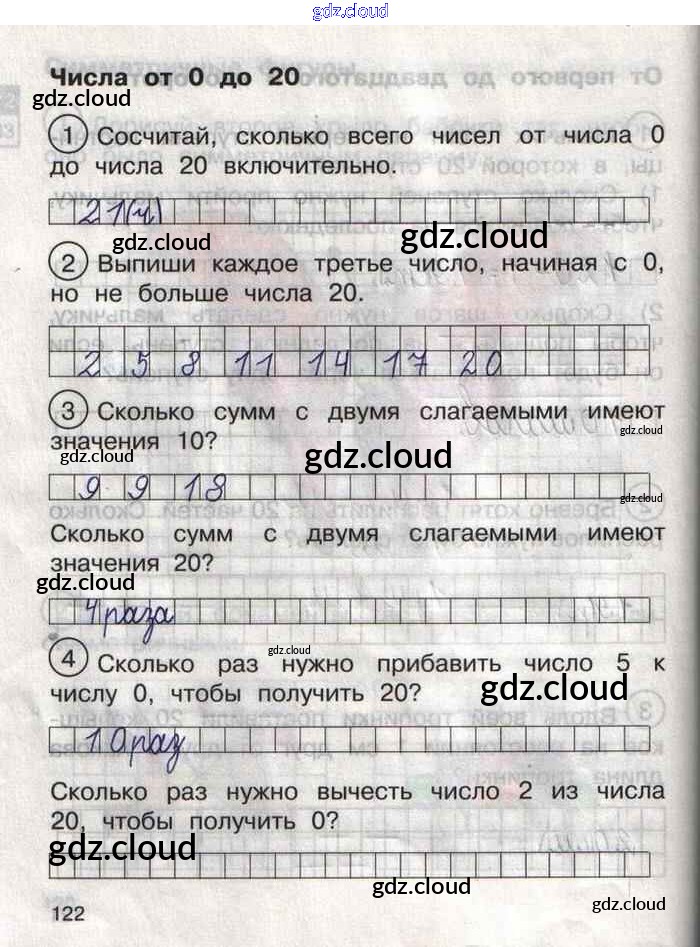 gdz.cloud
Числа от 0 до 20
gdz.cloud
1 Сосчитай, сколько всего чисел от числа 0
до числа 20 включительно.
21(ч)
gdz.cloud
gdz.cloud
2 Выпиши каждое третье число, начиная с 0,
но не больше числа 20.
2 5 8 11 14 17 20
3 Сколько сумм с двумя слагаемыми имеют
gdz.cloud
значения 10?
gdz.cloud
gdz.cloud
9 9 18
gdz.cloud
Сколько сумм с двумя слагаемыми имеют
значения 20?
gdz.cloud
4 раза
gdz.cloud
4 Сколько раз нужно прибавить число 5 к
числу 0, чтобы получить 20?
gdz.cloud
10 раз
Сколько раз нужно вычесть число 2 из числа
20, чтобы получить 0?
gdz.cloud
gdz.cloud
gdz.cloud
122